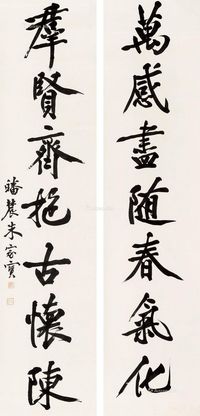 萬感盡随春氣化
羣賢齊抱古懷陳
蟠農朱家寳